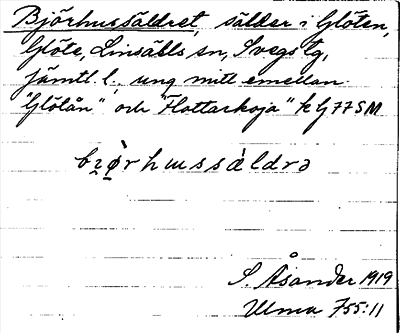 Björhussäldret, sälder i Glöten,
Glöte, Linsälls sn, Svegs tg,
Jämtl. l., ung mitt emellan
"Glötån" och "Flottarkoja" k G77SM
S. Åsander 1919
Ulma 755:11